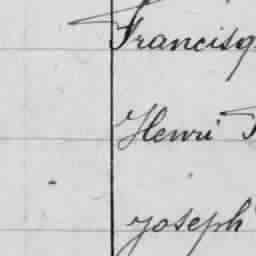 Francisq
Henri
Joseph